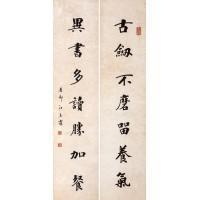 古劒不磨留養氣
異書多讀勝加餐